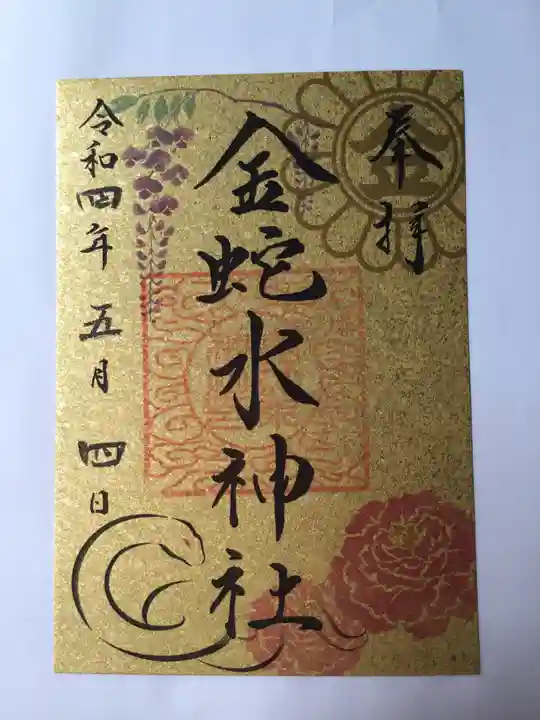 奉拝
金蛇水神社
令和四年五月四日